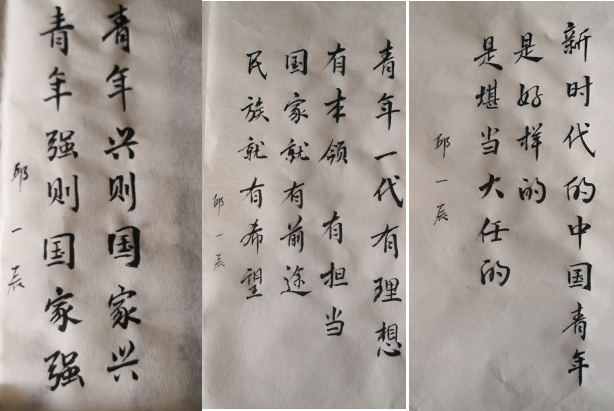 青年兴则国家兴
青年强则国家强
邱一辰
青年一代有理想
有本领 有担当
国家就有前途
民族就有希望
邱一辰
新时代的中国青年
是好样的
是堪当大任的
邱一辰